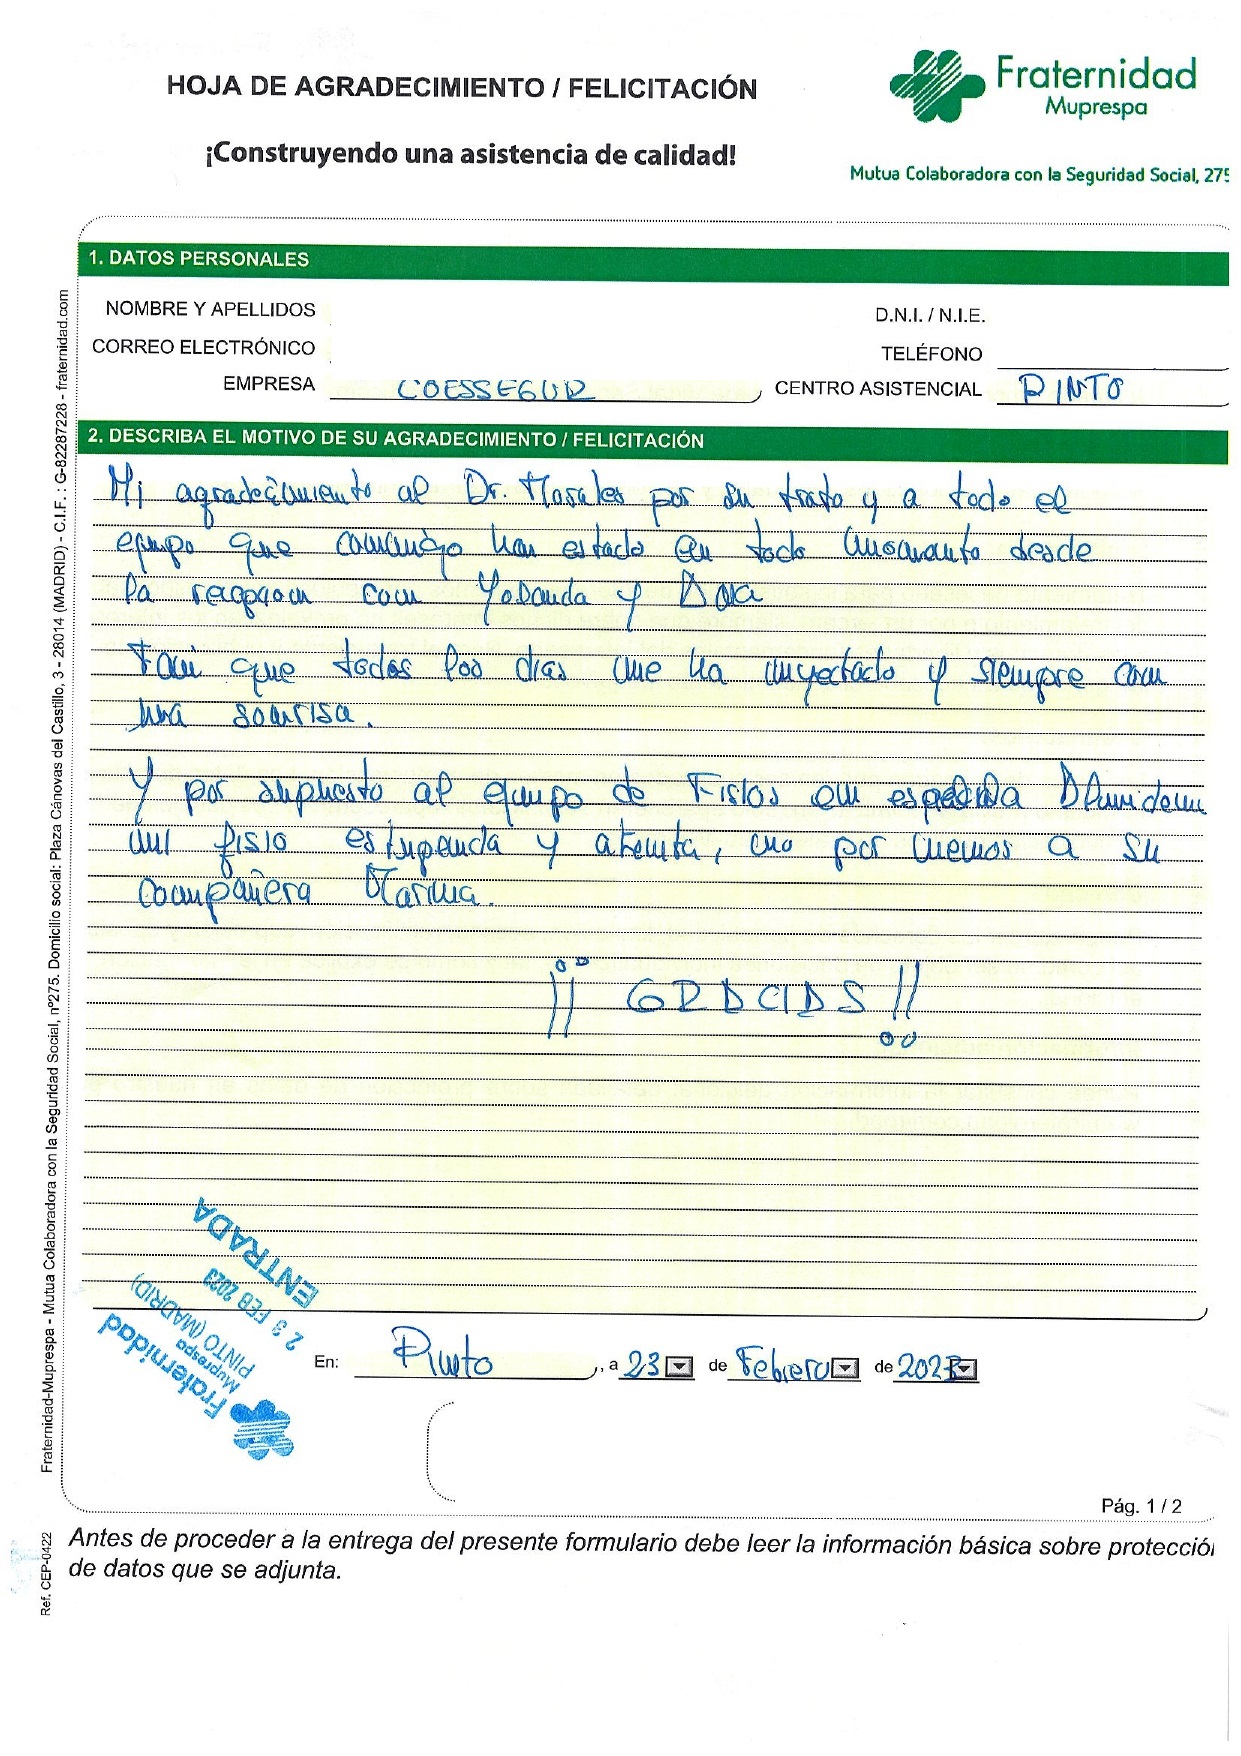 HOJA DE AGRADECIMIENTO / FELICITACIÓN
¡Construyendo una asistencia de calidad!
Fraternidad
Muprespa
Mutua Colaboradora con la Seguridad Social, 275
1. DATOS PERSONALES
NOMBRE Y APELLIDOS
D.N.I. / N.I.E.
CORREO ELECTRÓNICO
TELÉFONO
EMPRESA COESSEGUR
CENTRO ASISTENCIAL PINTO
2. DESCRIBA EL MOTIVO DE SU AGRADECIMIENTO / FELICITACIÓN
Mi agradecimiento al Dr. Morales por su trato y a todo el
equipo que conmigo han estado en todo momento desde
la recepcion con Yolanda y Ana
que todos los dias me ha inyectado y siempre con
una sonrisa.
Y por supuesto al equipo de Fisios en especial a
mi fisio estupenda y atenta, no por menos a su
compañera Marina.
¡¡ GRACIAS !!
ENTRADA
23 FEB 2023
PINTO (MADRID)
Muprespa
Fraternidad
En: Pinto, a 23 de Febrero de 2023
Pág. 1 / 2
Antes de proceder a la entrega del presente formulario debe leer la información básica sobre protecció
de datos que se adjunta.
Fraternidad-Muprespa - Mutua Colaboradora con la Seguridad Social, nº275. Domicilio social: Plaza Cánovas del Castillo, 3 - 28014 (MADRID) - C.I.F. : G-82287228 - fraternidad.com
Ref. CEP-0422